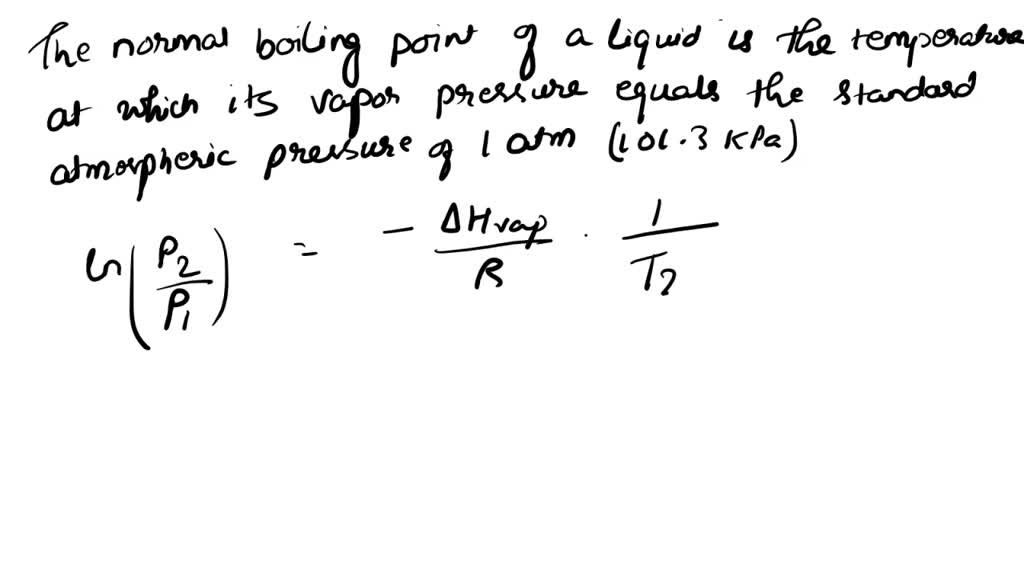 The normal boiling point of a liquid is the temperature
at which its vapor pressure equals the standard
atmospheric pressure of 1 atm (101.3 KPa)
ln(P2/P1) = - ΔHvap/R . 1/T2